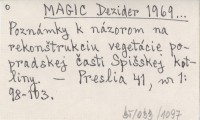 MAGIC Dezider 1969...
Poznámky k názorom na
rekonštrukciu vegetácie po-
pradskej časti Spišskej kot-
liny. — Preslia 41, nr 1:
98-103.